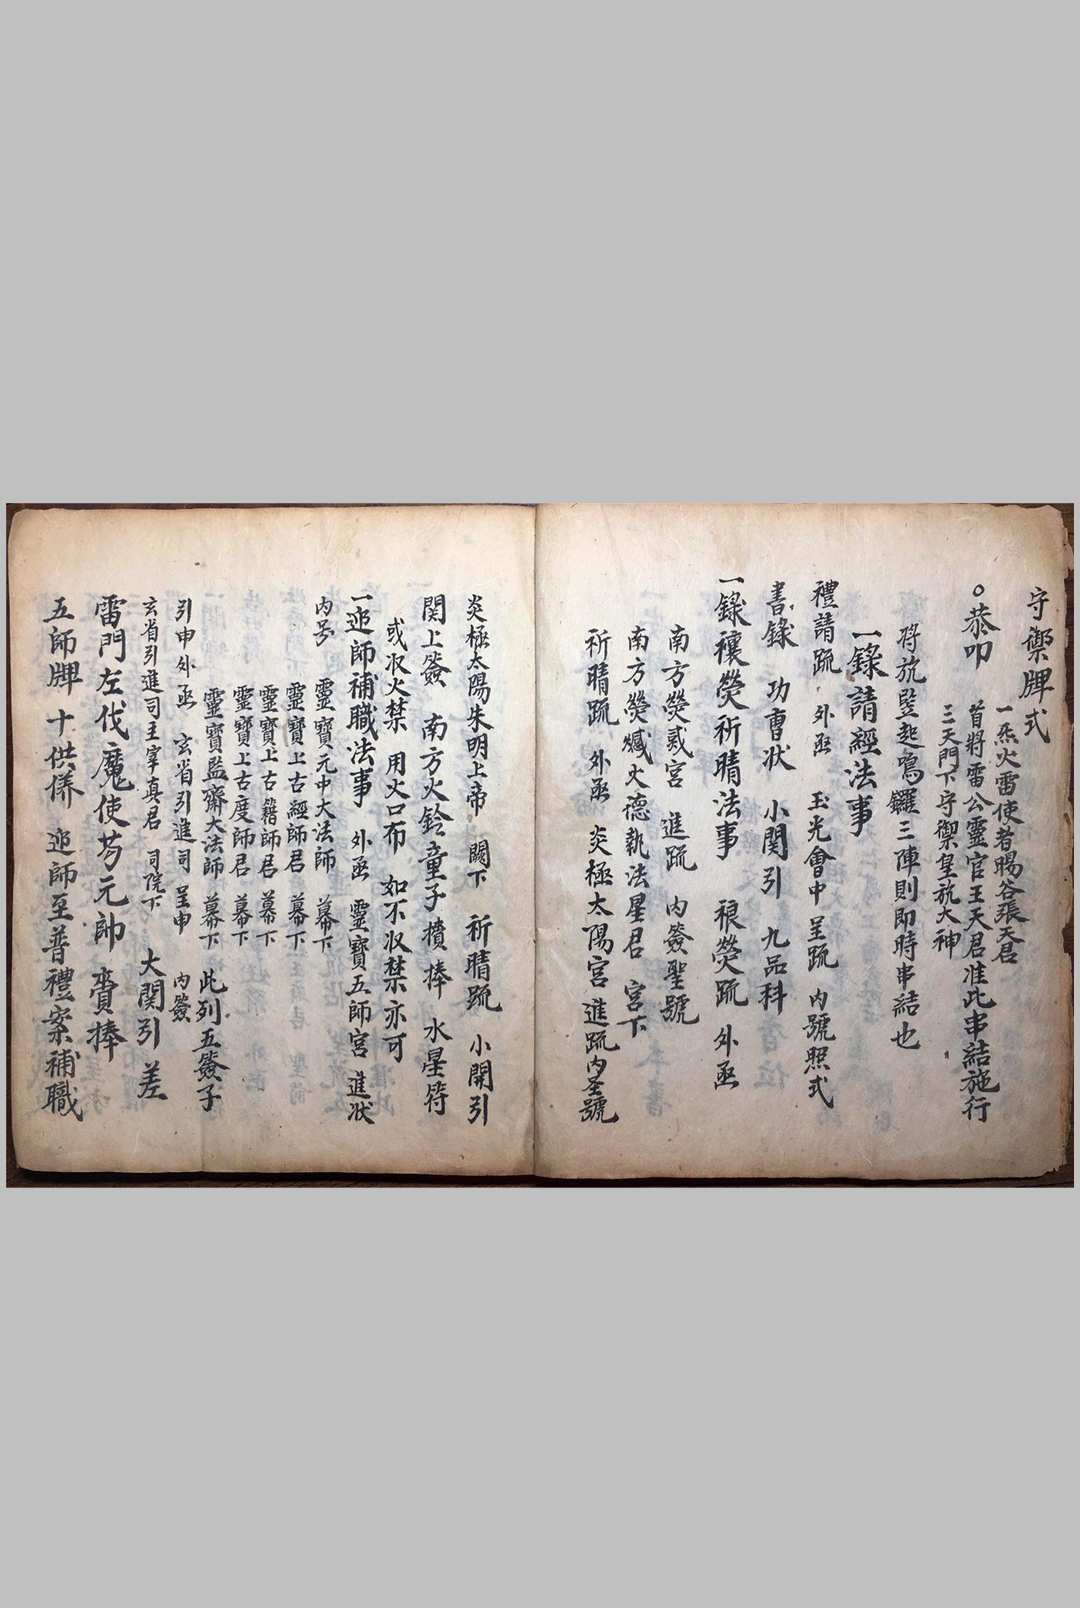 守禦牌式
○恭叩
一炁火雷使者賜谷張天君
首將雷公靈官王天君准此串結施行
三天門下守禦皇旂大神
将旂竪起鳴鑼三陣則即時串結也
一錄請經法事
禮請䟽 外函 玉光會中 呈䟽 内號照式
書錄 功曹状 小関引 九品科
一錄禳熒祈晴法事 禳熒䟽 外函
南方熒惑宮 進䟽 内簽聖號
南方熒惑火德執法星君 宮下
祈晴䟽 外函 炎極太陽宮進䟽内圣號
炎極太陽朱明上帝 闕下 祈晴䟽 小関引
関上簽 南方火鈴童子捧 水星符
或収火禁 用火口布 如不収禁亦可
一追師補職法事 外函 靈寶五師宮 進狀
内号 靈寶元中大法師 幕下
靈寶上古經師君 幕下
靈寶上古籍師君 幕下
靈寶上古度師君 幕下
靈寶監齋大法師 幕下 此列五簽子
引申外函 玄省引進司 呈申 内簽
玄省引進司主宰真君 司院下 大関引 差
雷門左伐魔使苟元帥 賫捧
五師牌 十供儀 追師至普禮案補職